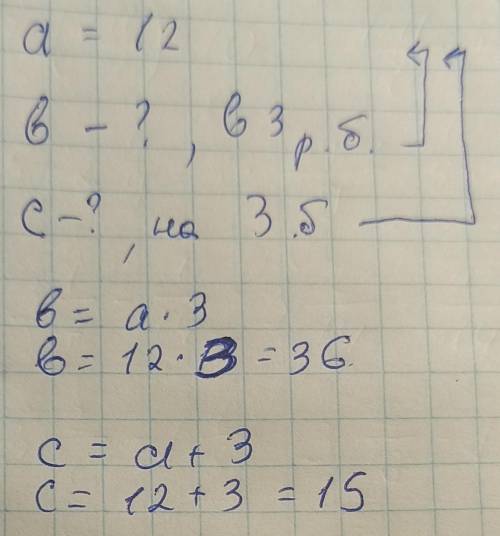 a = 12
в - ?, в 3 р.б.
с - ?, на 3.б
в = а · 3
в = 12 · 3 = 36
с = а + 3
с = 12 + 3 = 15